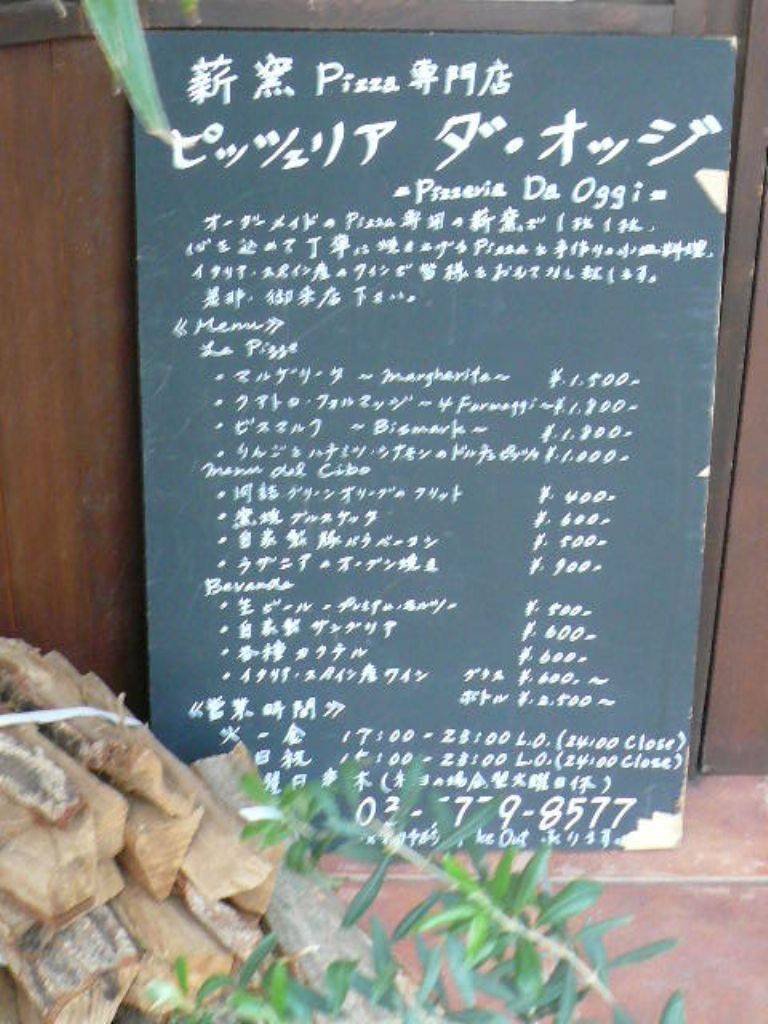 薪窯 Pizza 専門店
ピッツェリア ダ・オッジ
=Pizzeria Da Oggi=
オーダーメイドのPizza専用の薪窯で1枚1枚、
心を込めて丁寧に焼き上げるPizzaと手作りの小皿料理、
イタリア・スペイン産のワインで皆様をおもてなし致します。
是非、御来店下さい。
《Menu》
Le Pizze
・マルゲリータ ~Margherita~ ¥.1,500-
・クアトロ・フォルマッジ ~4 Formaggi~ ¥.1,800-
・ビスマルク ~Bismark~ ¥.1,800-
・りんごとハチミツ・シナモンのドルチェピッツァ ¥.1,000-
Menu del Cibo
・肉詰グリーンオリーブのフリット ¥.400-
・窯焼ブルスケッタ ¥.600-
・自家製豚バラベーコン ¥.500-
・ラザニアのオーブン焼き ¥.900-
Bevande
・生ビール -プレミアム・モルツ- ¥.500-
・自家製サングリア ¥.600-
・各種カクテル ¥.600-
・イタリア・スペイン産ワイン グラス ¥.600,~
ボトル ¥.2,500~
《営業時間》
火-金 17:00-23:00 L.O.(24:00 Close)
日祝 15:00-23:00 L.O.(24:00 Close)
曜日定休(祝日の場合翌火曜日休)
779-8577
Out 承ります。